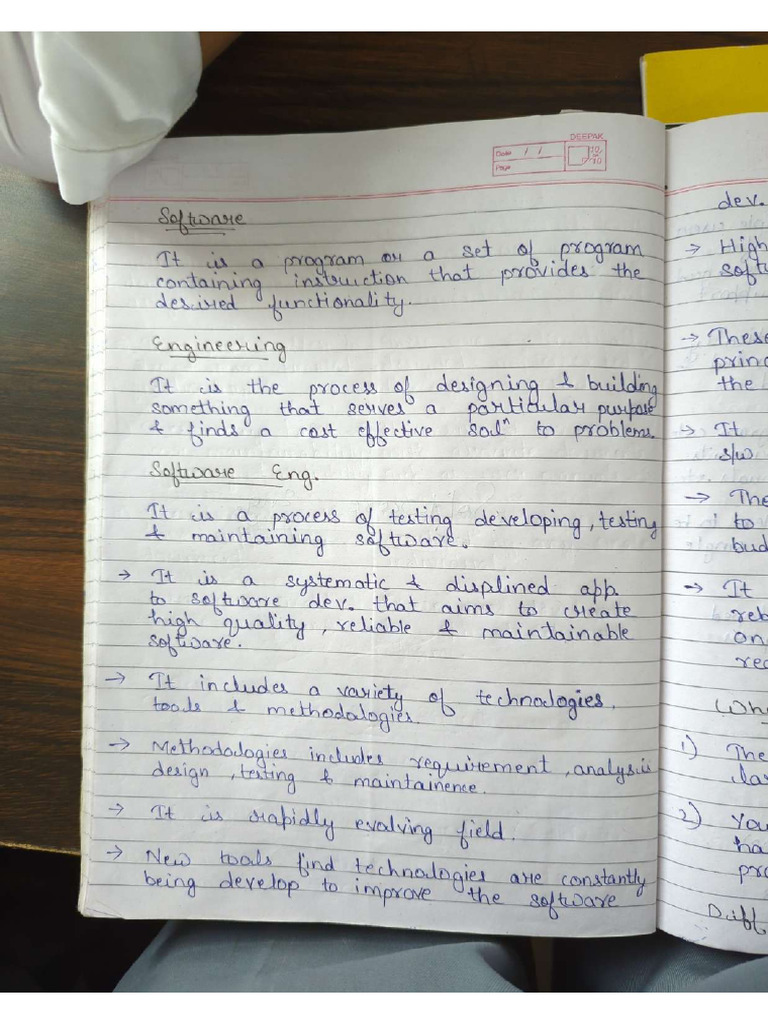 DEEPAK
Date / /
Page
Software
It is a program or a set of program
containing instruction that provides the
desired functionality.
Engineering
It is the process of designing & building
something that serves a particular purpose
& finds a cost effective solⁿ to problems.
Software Eng.
It is a process of testing developing, testing
& maintaining software.
→ It is a systematic & displined app.
to software dev. that aims to create
high quality, reliable & maintainable
software.
→ It includes a variety of technologies.
tools & methodologies.
→ Methodologies includes requirement, analysis
design, testing & maintainence.
→ It is rapidly evolving field.
→ New tools find technologies are constantly
being develop to improve the software
dev.
→ High
soft
→ These
princ
the
→ It
s/w
→ The
to
bud
→ It
reb
on
rec
Why
1) The
lar
2) You
ha
pro
Diff